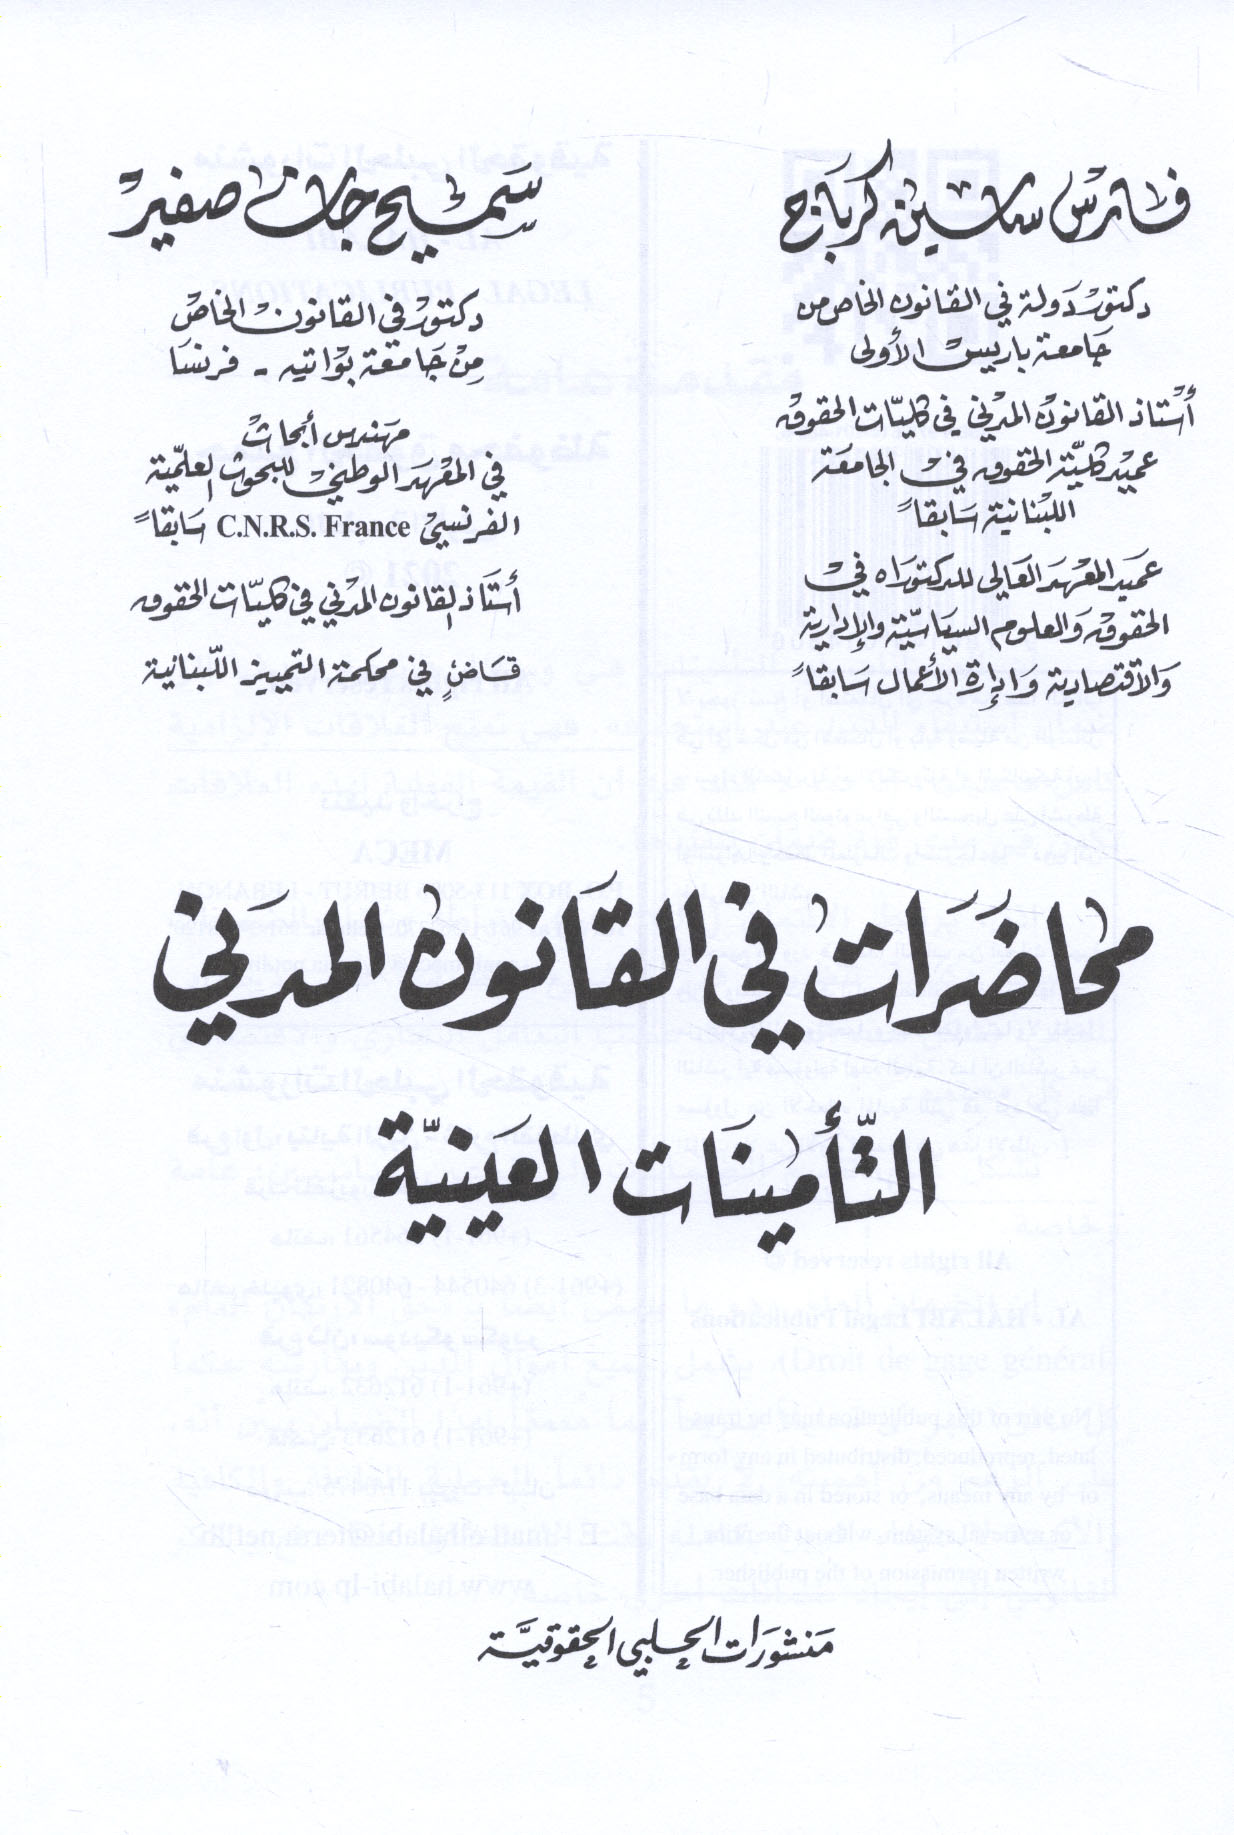 فارس ساسين كرباج
دكتور دَولة في القانون الخاص من
جَامعة باريس الأولى
أستاذ القانون المدني في كليّات الحقوق
عميد كليّة الحقوق في الجامعة
اللبنانية سَابقاً
عميد المعهَد العَالي للدكتوراه في
الحقوق وَالعلوم السيَاسيّة والإدارية
وَالاقتصادية وَإدارة الأعمال سَابقاً
سَميح جان صفير
دكتور في القانون الخاص
مِن جَامعَة بوَاتيه - فرنسَا
مهَندس أبحاث
في المعهَد الوطني للبحوث العلميّة
الفرنسي C.N.R.S. France سَابقاً
أستَاذ القانون المدني في كليّات الحقوق
قاضٍ في محكمة التمييز اللّبنانية
محاضَرات في القانون المدَني
التّأمينَات العَينيّة
مَنشورَات الحلبي الحقوقيَّة